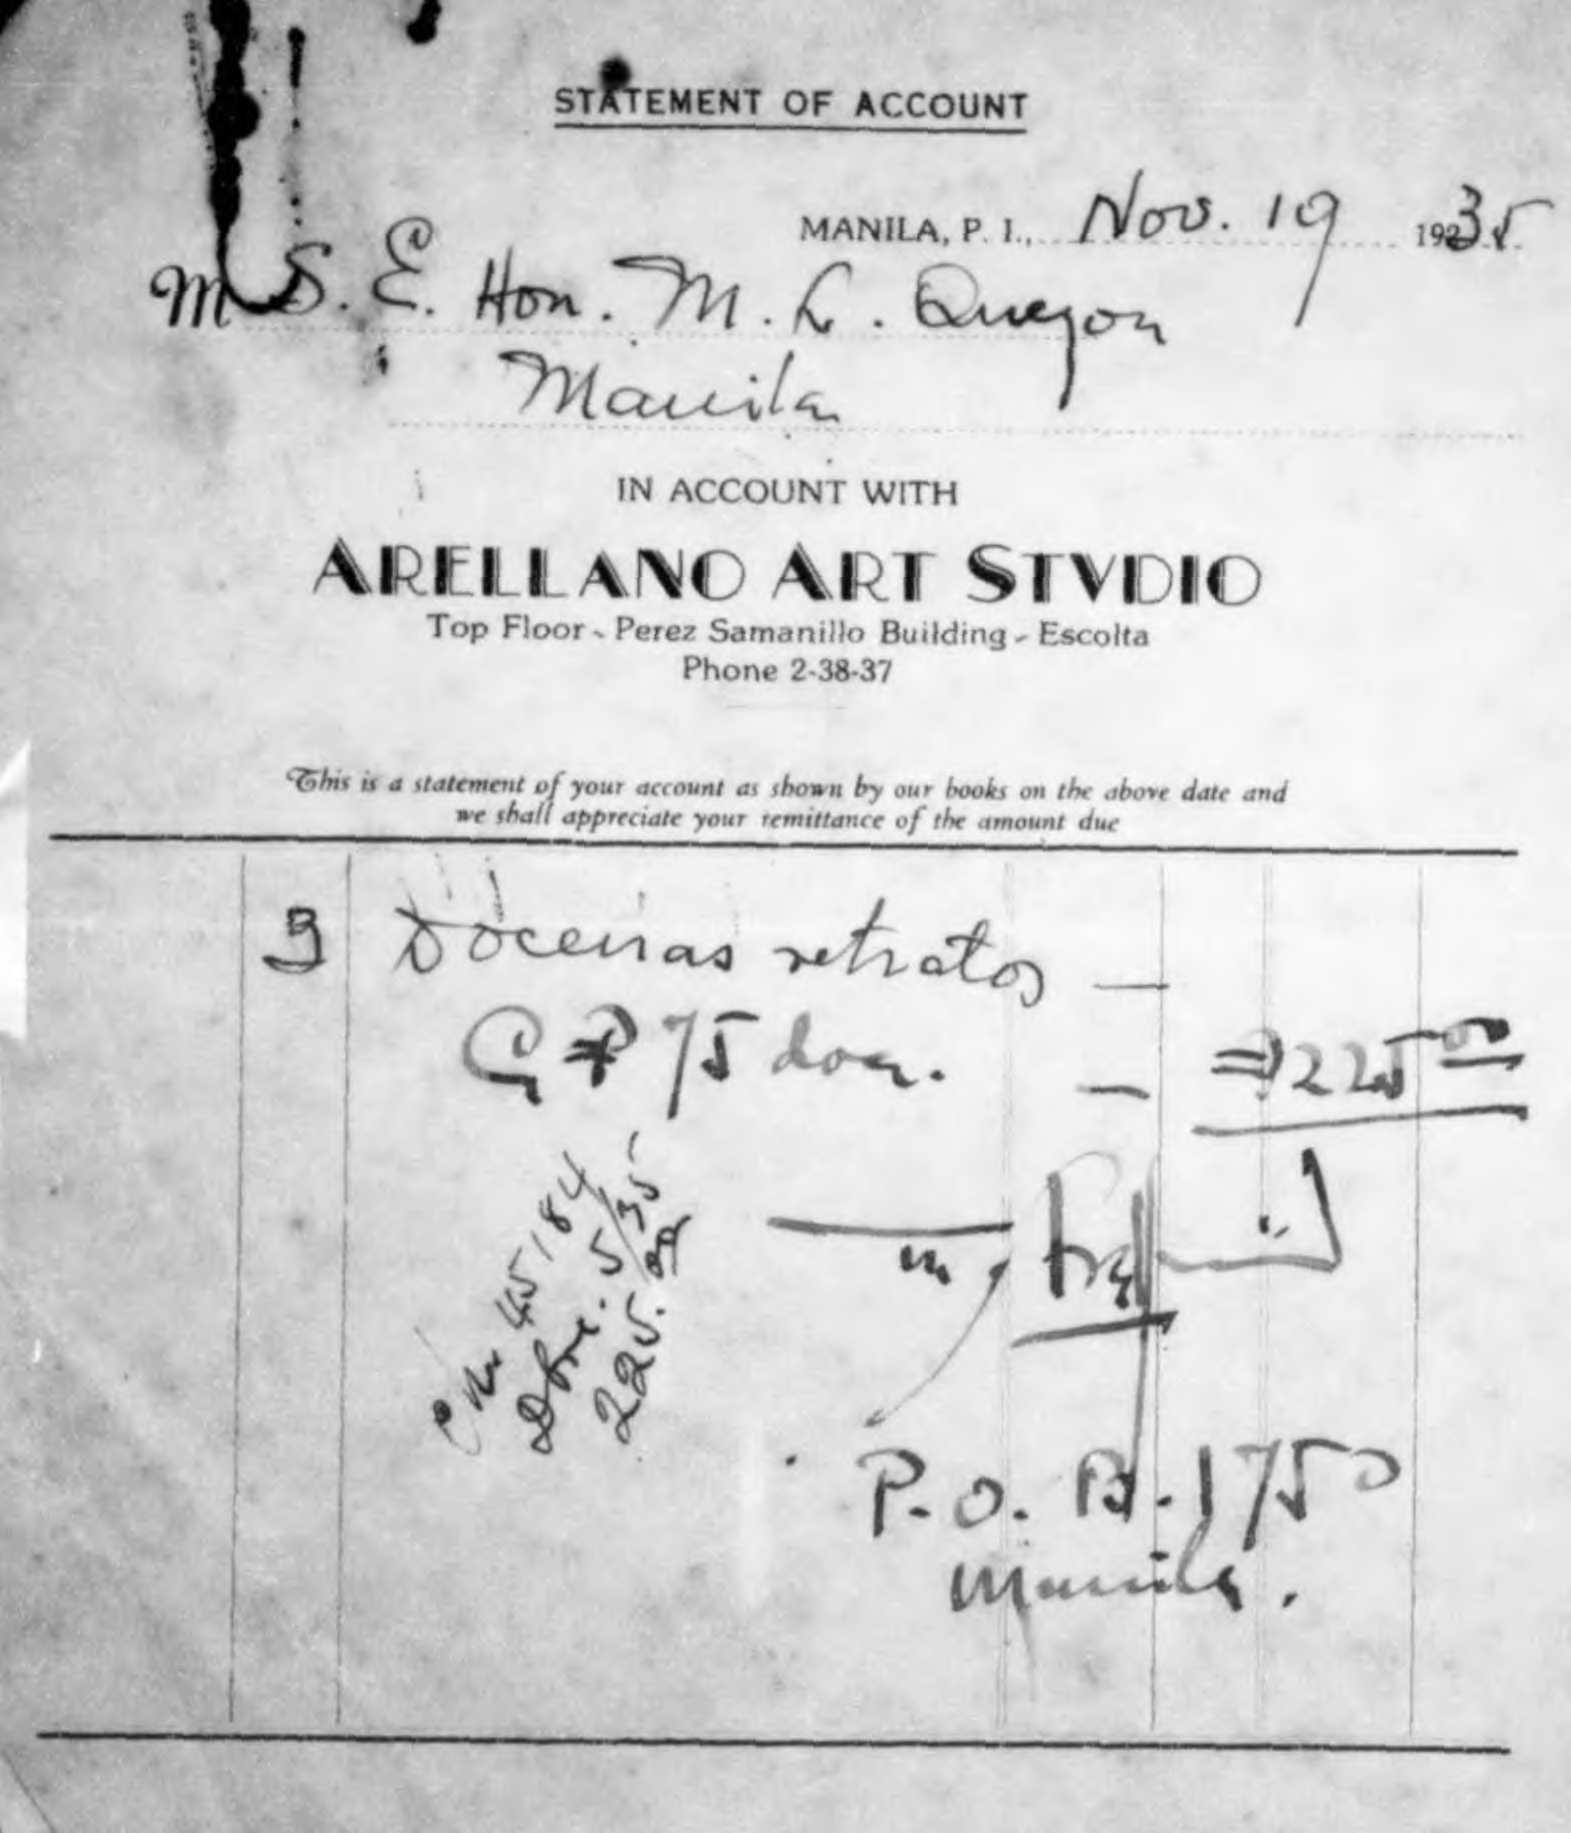 STATEMENT OF ACCOUNT
MANILA, P. I., Nov. 19 1935
M S. E. Hon. M. L. Quezon
Manila
IN ACCOUNT WITH
ARELLANO ART STVDIO
Top Floor - Perez Samanillo Building - Escolta
Phone 2-38-37
This is a statement of your account as shown by our books on the above date and
we shall appreciate your remittance of the amount due
3 Docenas retratos —
₱ 75 doc. — ₱225 00
45184
Dbre. 5/35
225.00
P. O. B. 1750
Manila.